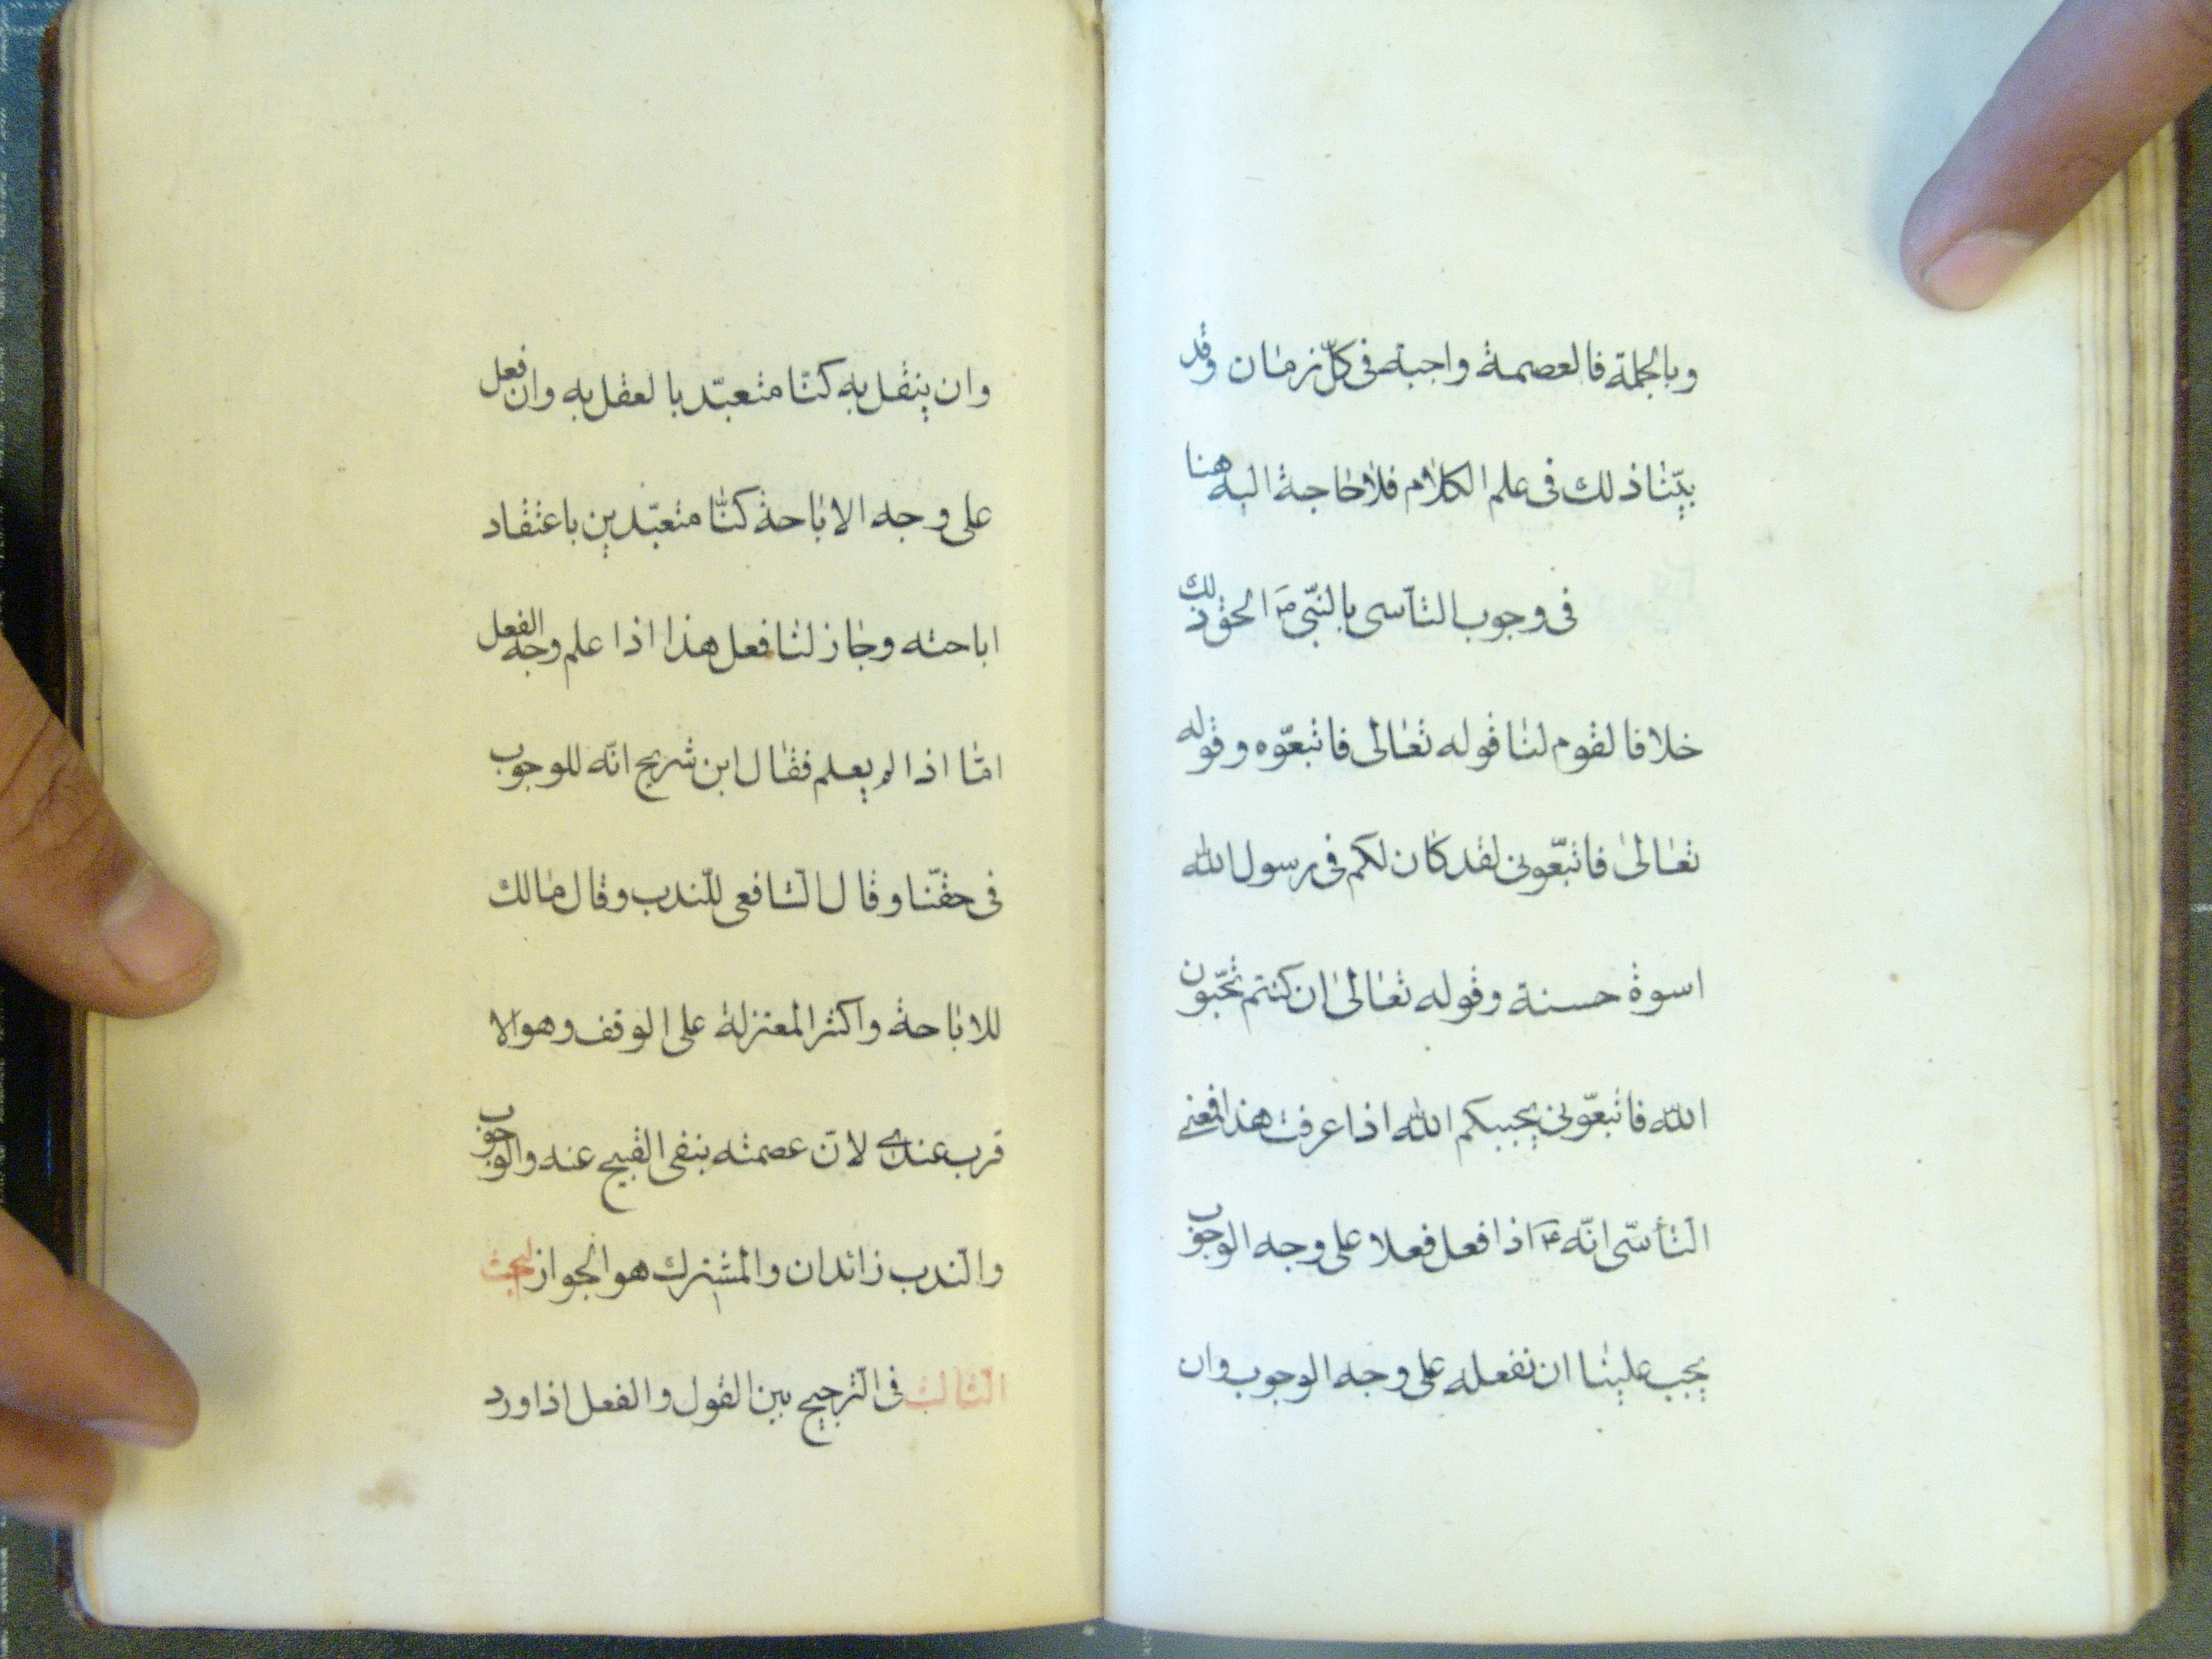 وبالجملة فالعصمة واجبة فى كلّ زمان وقد
بيّنا ذلك فى علم الكلام فلا حاجة اليه هنا
فى وجوب التأسى بالنبّى ص الحق ذلك
خلافا لقوم لنا قوله تعالى فاتبعّوه وقوله
تعالى فاتبعّونى لقد كان لكم فى رسول الله
اسوة حسنة وقوله تعالى ان كنتم تحبّون
الله فاتبعّونى يحببكم الله اذا عرفت هذا فمعنى
التأسّى انّه اذا فعل فعلا على وجه الوجوب
يجب علينا ان نفعله على وجه الوجوب وان
وان ينقل به كنّا متعبّد بالعقل به وان فعل
على وجه الاباحة كنّا متعبّدين باعتقاد
اباحته وجاز لنا فعل هذا اذا علم وجه الفعل
امّا اذا لم يعلم فقال ابن شريح انّه للوجوب
فى حقّنا وقال الشافعى للنّدب وقال مالك
للاباحة واكثر المعتزلة على الوقف وهو الا
قرب عندى لانّ عصمته ينفى القبيح عنه والوجوب
والندب زائدان والمشترك هو الجواز البحث
الثالث فى الترجيح بين القول والفعل اذا ورد